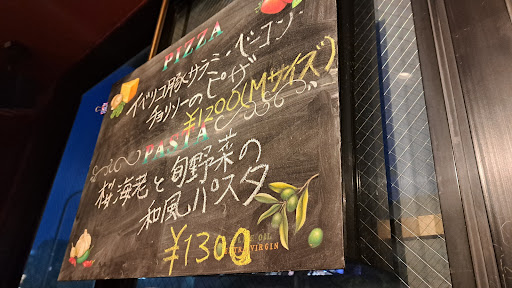 PIZZA
イベリコ豚サラミ、ベーコン
チョリソーのピザ
¥1200(Mサイズ)
PASTA
桜海老と旬野菜の
和風パスタ
¥1300
OIL
EXTRA VIRGIN